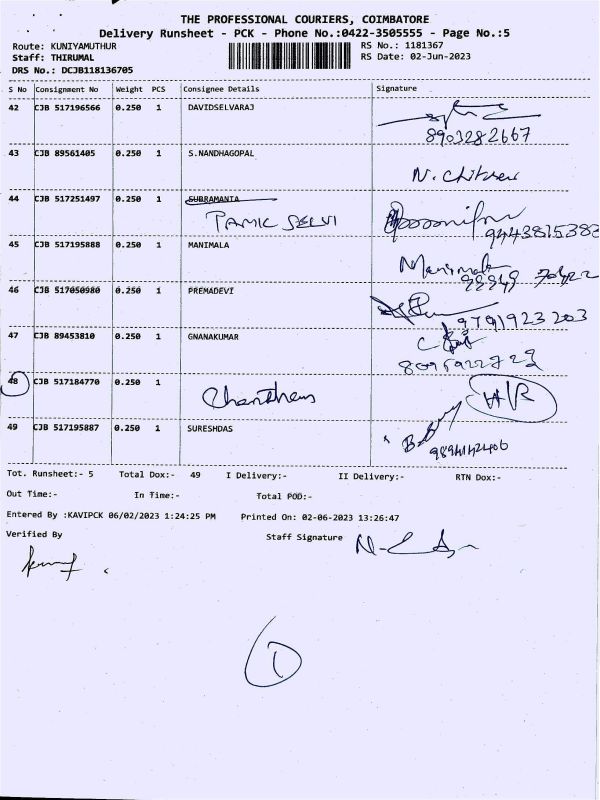 THE PROFESSIONAL COURIERS, COIMBATORE
Delivery Runsheet - PCK - Phone No.:0422-3505555 - Page No.:5
Route: KUNIYAMUTHUR RS No.: 1181367
Staff: THIRUMAL RS Date: 02-Jun-2023
DRS No.: DCJB118136705
S No Consignment No Weight PCS Consignee Details Signature
42 CJB 517196566 0.250 1 DAVIDSELVARAJ
8903282667
43 CJB 89561405 0.250 1 S.NANDHAGOPAL
N. Chitraeu
44 CJB 517251497 0.250 1 SUBRAMANIA
TAMIL SELVI 9443815383
45 CJB 517195888 0.250 1 MANIMALA
Manimala
46 CJB 517050980 0.250 1 PREMADEVI
9791923203
47 CJB 89453810 0.250 1 GNANAKUMAR
48 CJB 517184770 0.250 1
49 CJB 517195887 0.250 1 SURESHDAS
Tot. Runsheet:- 5 Total Dox:- 49 I Delivery:- II Delivery:- RTN Dox:-
Out Time:- In Time:- Total POD:-
Entered By :KAVIPCK 06/02/2023 1:24:25 PM Printed On: 02-06-2023 13:26:47
Verified By Staff Signature
1